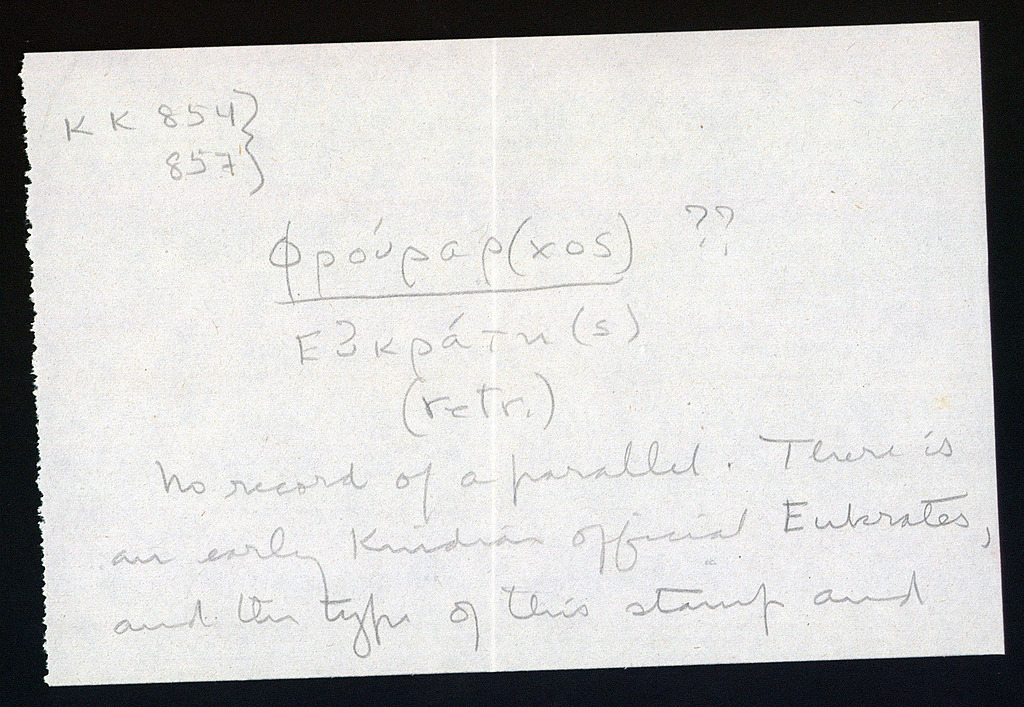 KK 854}
857}
Φρούραρ(χος) ??
Ε3κράτη(ς)
(retr.)
No record of a parallel. There is
an early Knidian official Eukrates,
and the type of this stamp and